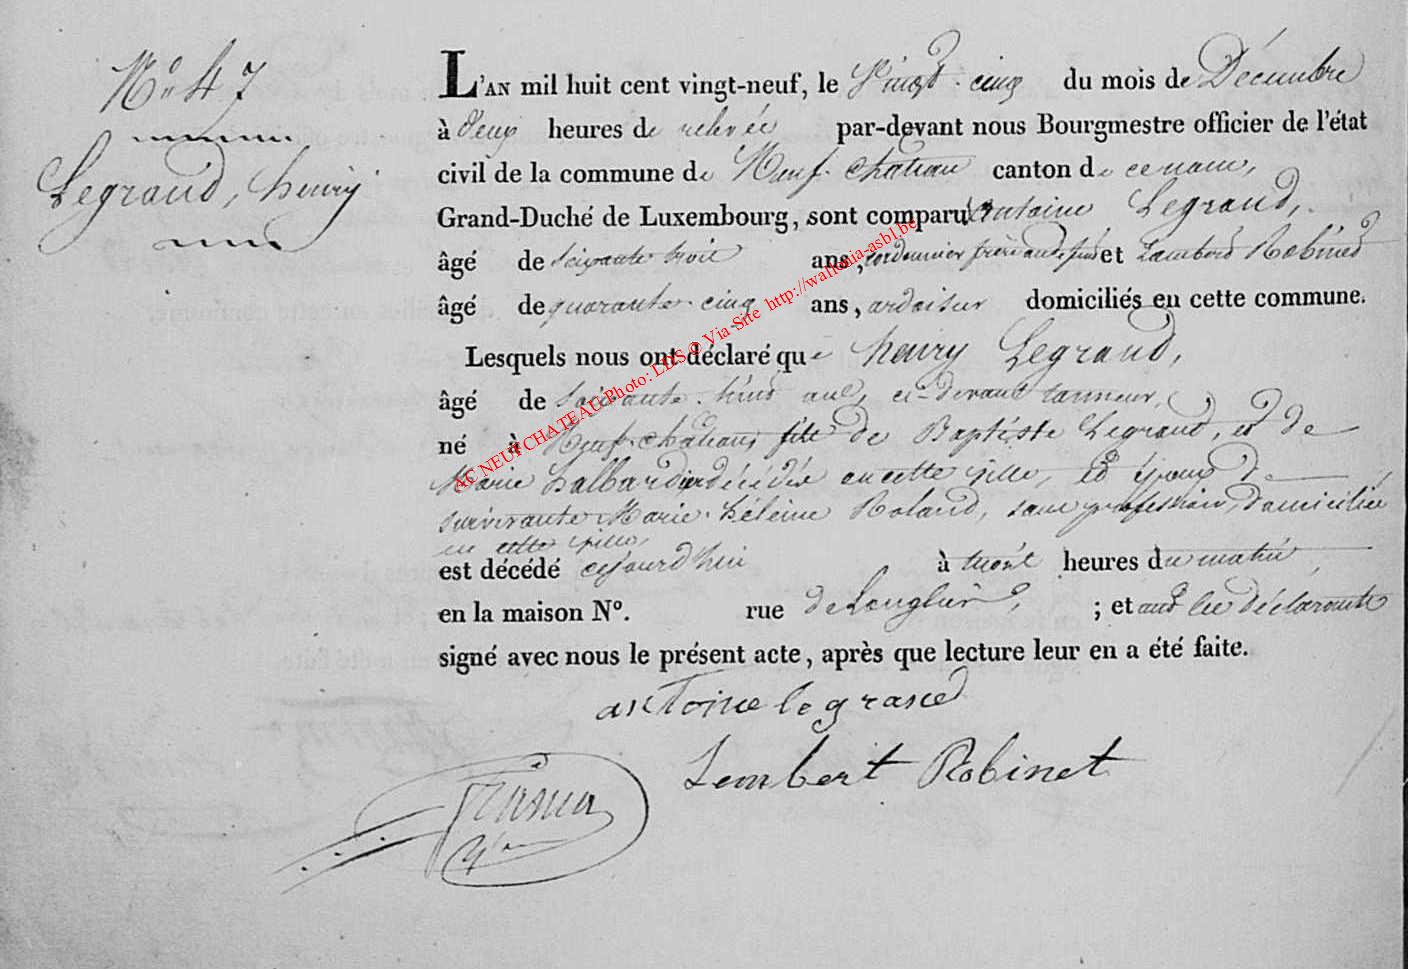 N° 47
Legrand, henry
L'AN mil huit cent vingt-neuf, le Vingt-cinq du mois de Décembre
à deux heures de relevée par-devant nous Bourgmestre officier de l'état
civil de la commune de Neuf-château canton de ce nom,
Grand-Duché de Luxembourg, sont comparus antoine Legrand,
âgé de soixante trois ans, cordonnier frère audit et Lambert Robinet
âgé de quarante-cinq ans, ardoisier domiciliés en cette commune.
Lesquels nous ont déclaré que henry Legrand,
âgé de soixante-huit ans, ci-devant tanneur,
né à Neuf-château, fils de Baptiste Legrand, et de
Marie décédés en cette ville, et époux de
survivante Marie-hélène Roland, sans profession, domiciliée
en cette ville,
est décédé cejourd'hui à heures du matin,
en la maison N°. rue de Longlier, ; et ont les déclarants
signé avec nous le présent acte, après que lecture leur en a été faite.
antoine legrand
Lembert Robinet
AC NEUFCHATEAU Photo: LDS © Via Site http://wallonia-asbl.be